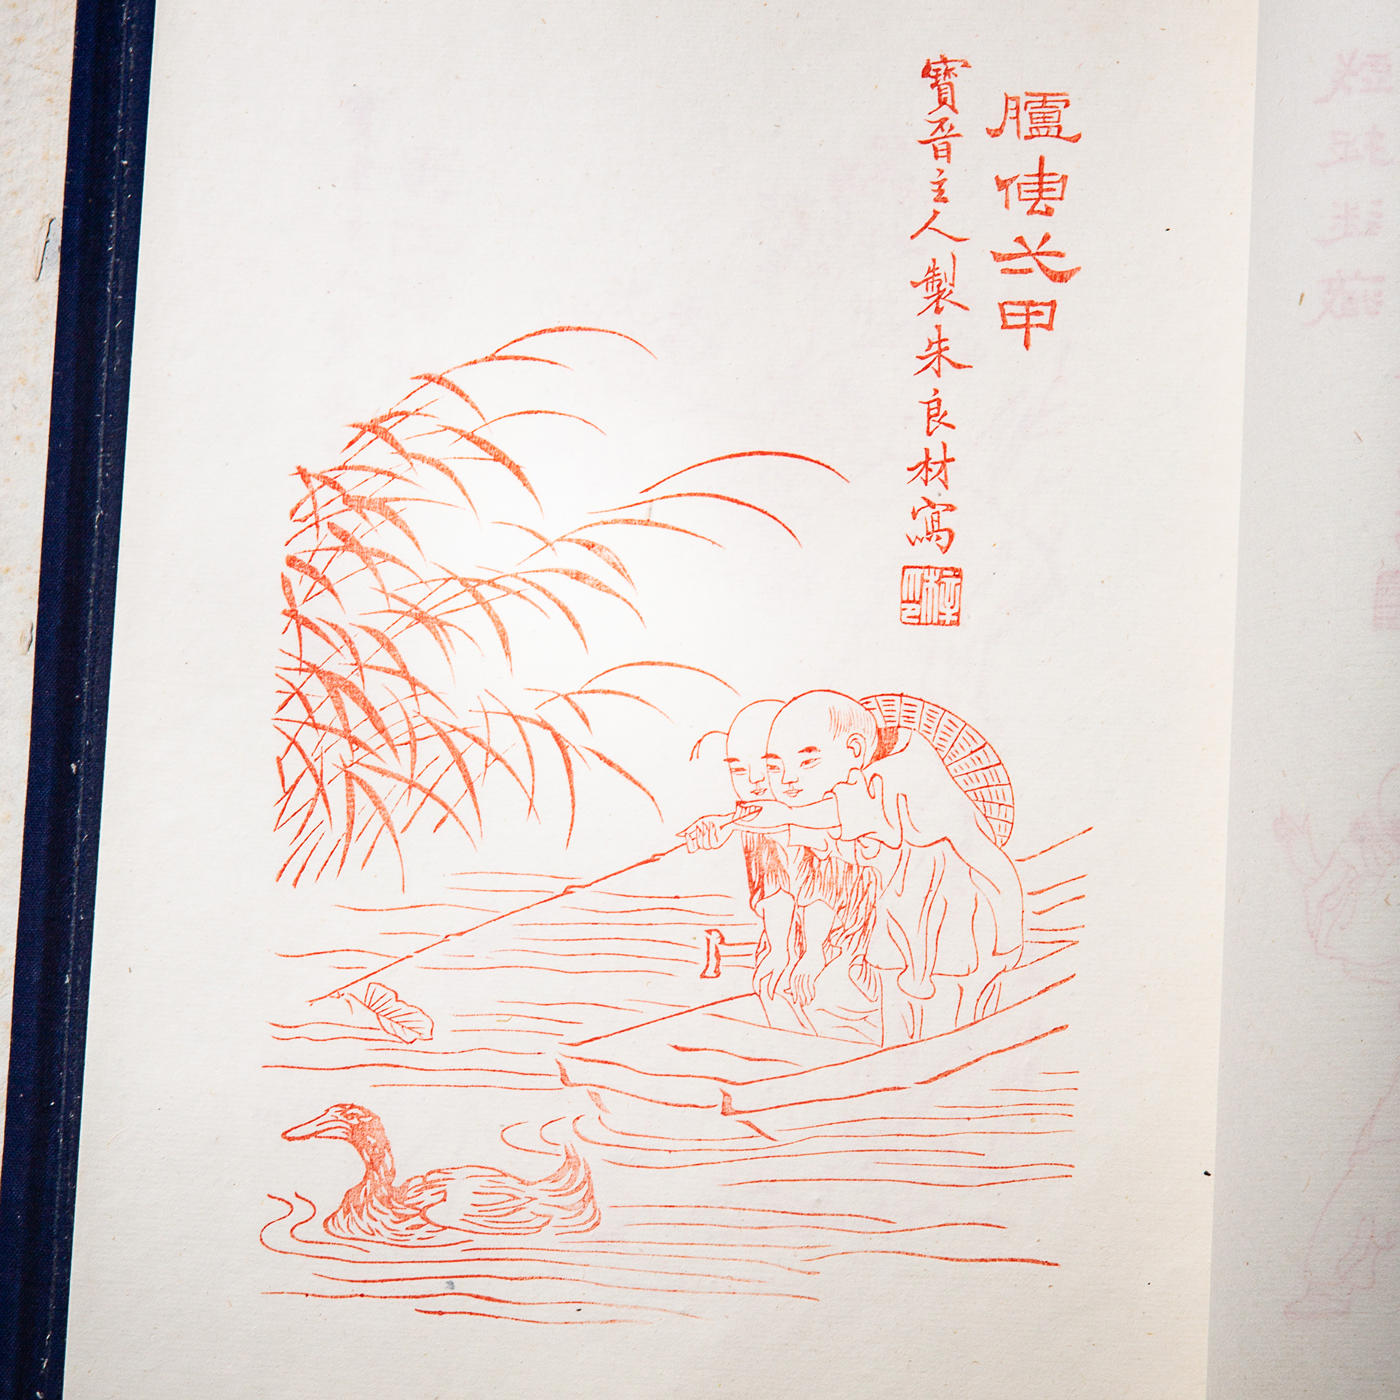 臚傳弌甲
寶晉主人製朱良材寫